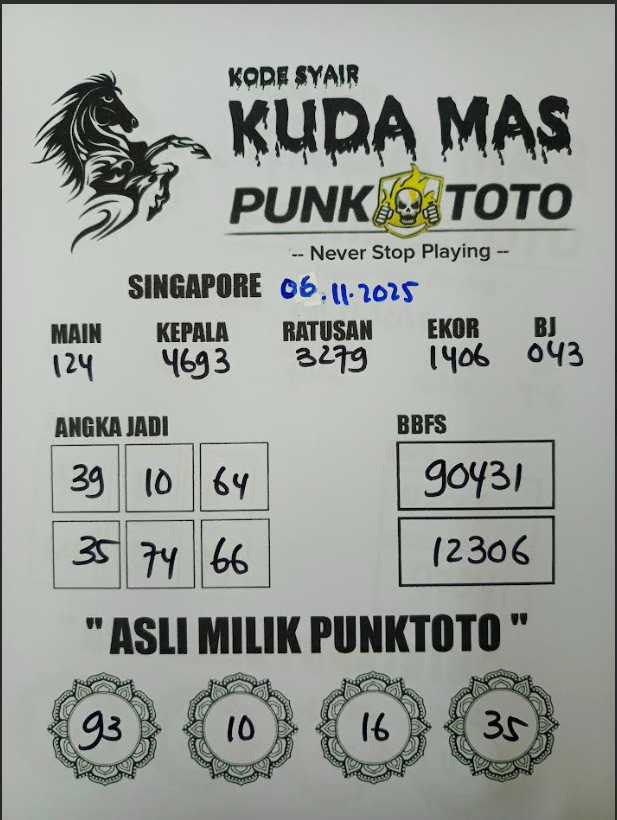 KODE SYAIR
KUDA MAS
PUNK TOTO
-- Never Stop Playing --
SINGAPORE 06.11.2025
MAIN KEPALA RATUSAN EKOR BJ
124 4693 3279 1406 043
ANGKA JADI BBFS
39 10 64 90431
35 74 66 12306
" ASLI MILIK PUNKTOTO "
93 10 16 35